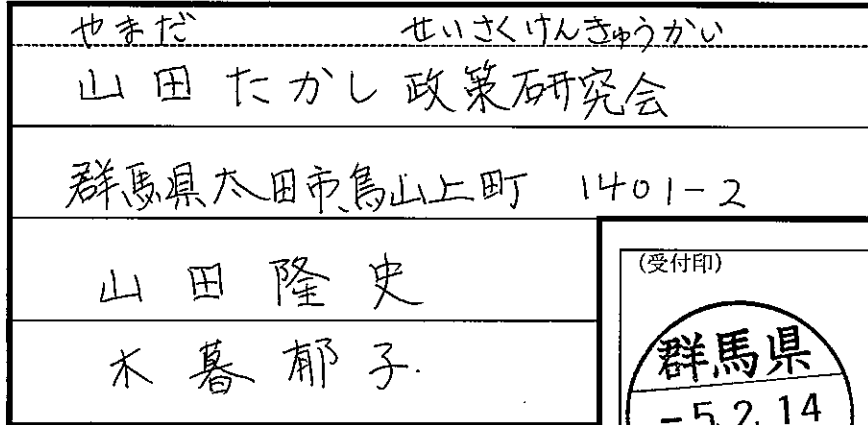 やまだ せいさくけんきゅうかい
山田たかし政策研究会
群馬県太田市鳥山上町 1401-2
山田隆史
木暮郁子
(受付印)
群馬県
-5.2.14